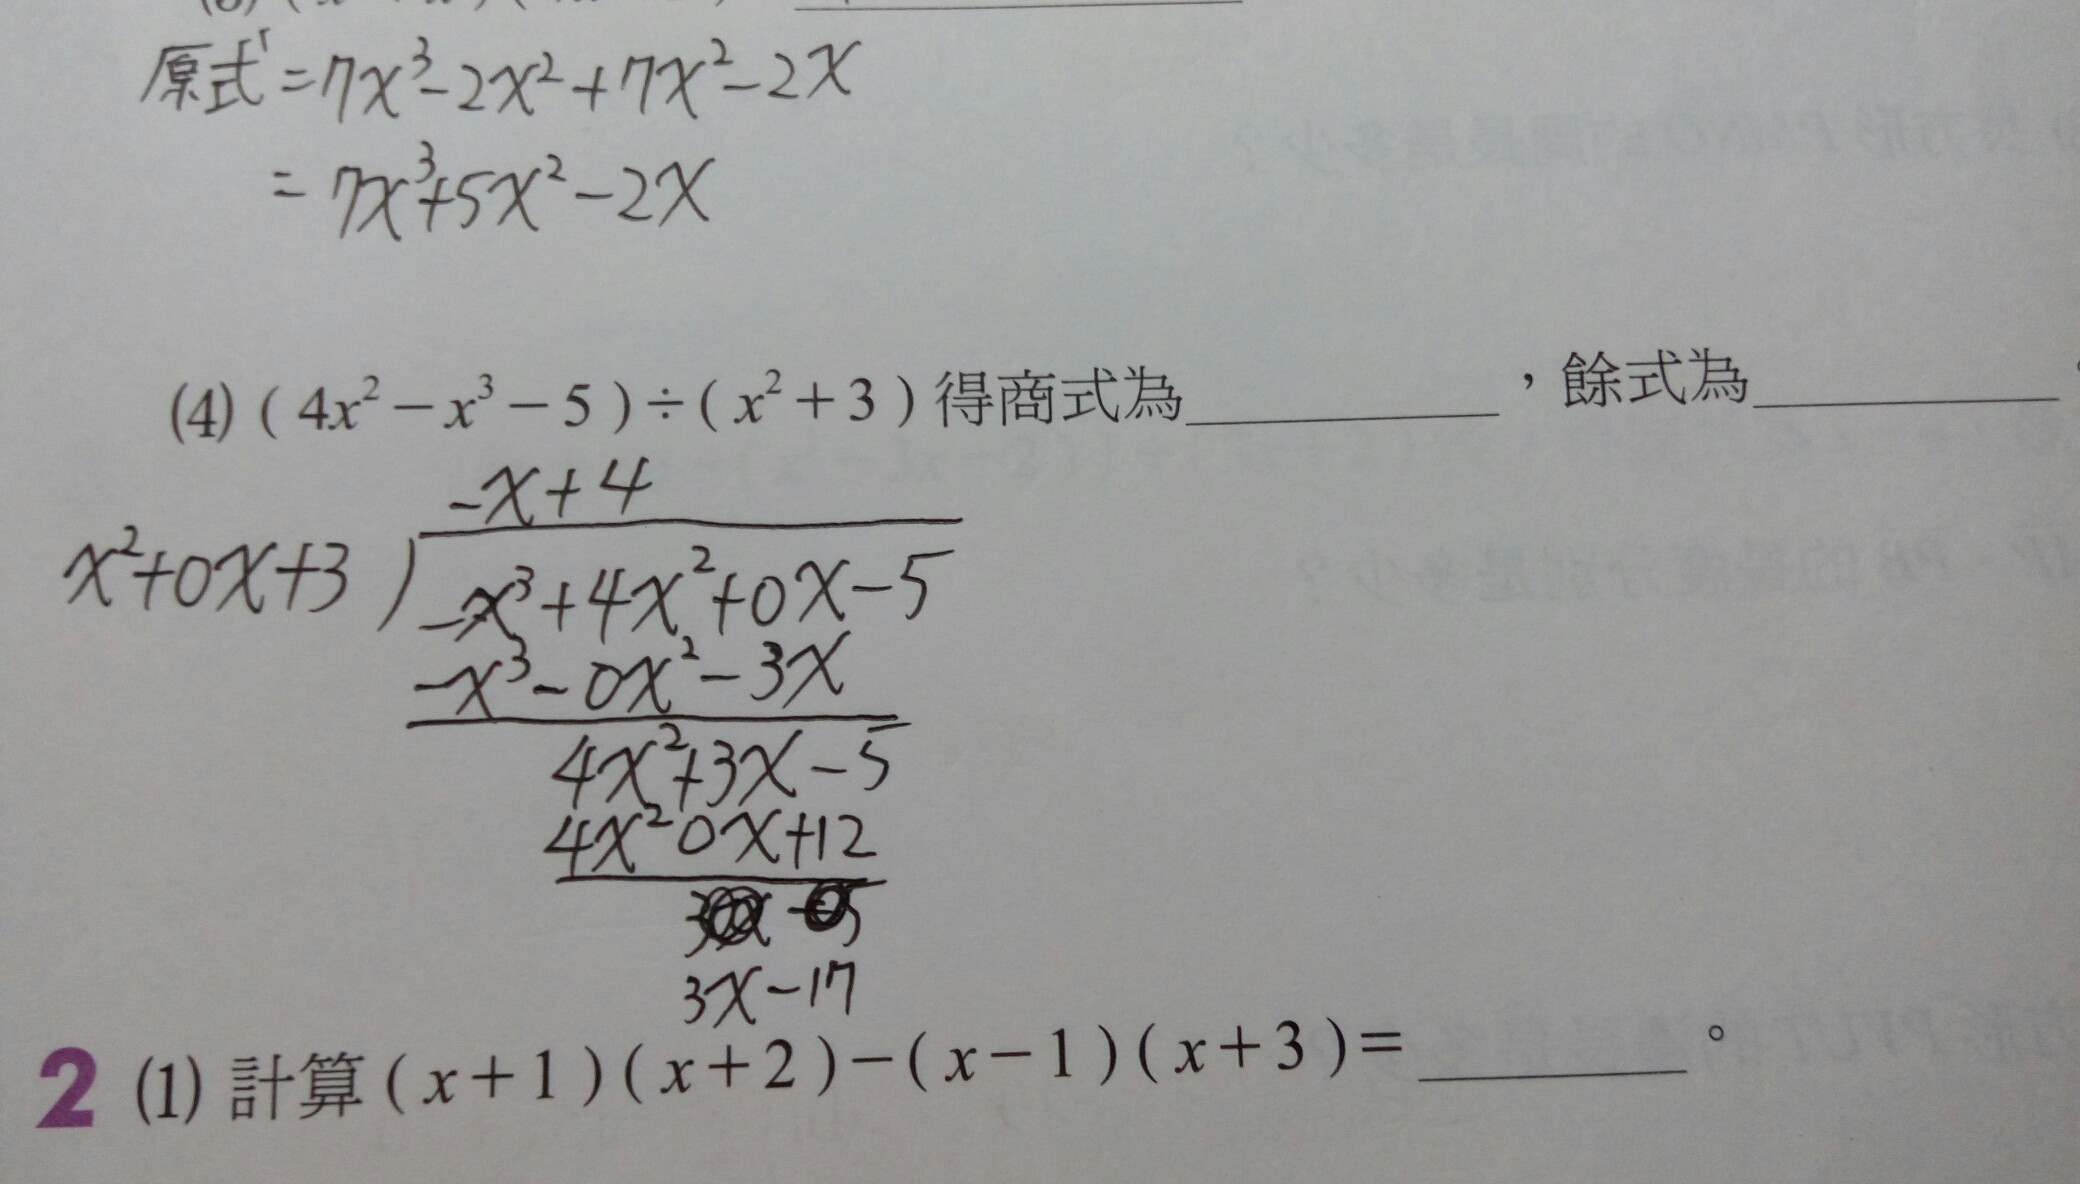 原式=7x³-2x²+7x²-2x
=7x³+5x²-2x
(4) ( 4x² - x³ - 5 ) ÷ ( x² + 3 ) 得商式為________，餘式為________
-x+4
x²+0x+3 ) -x³+4x²+0x-5
-x³-0x²-3x
4x²+3x-5
4x² 0x+12
3x-17
2 (1) 計算 ( x + 1 ) ( x + 2 ) - ( x - 1 ) ( x + 3 ) = ________。